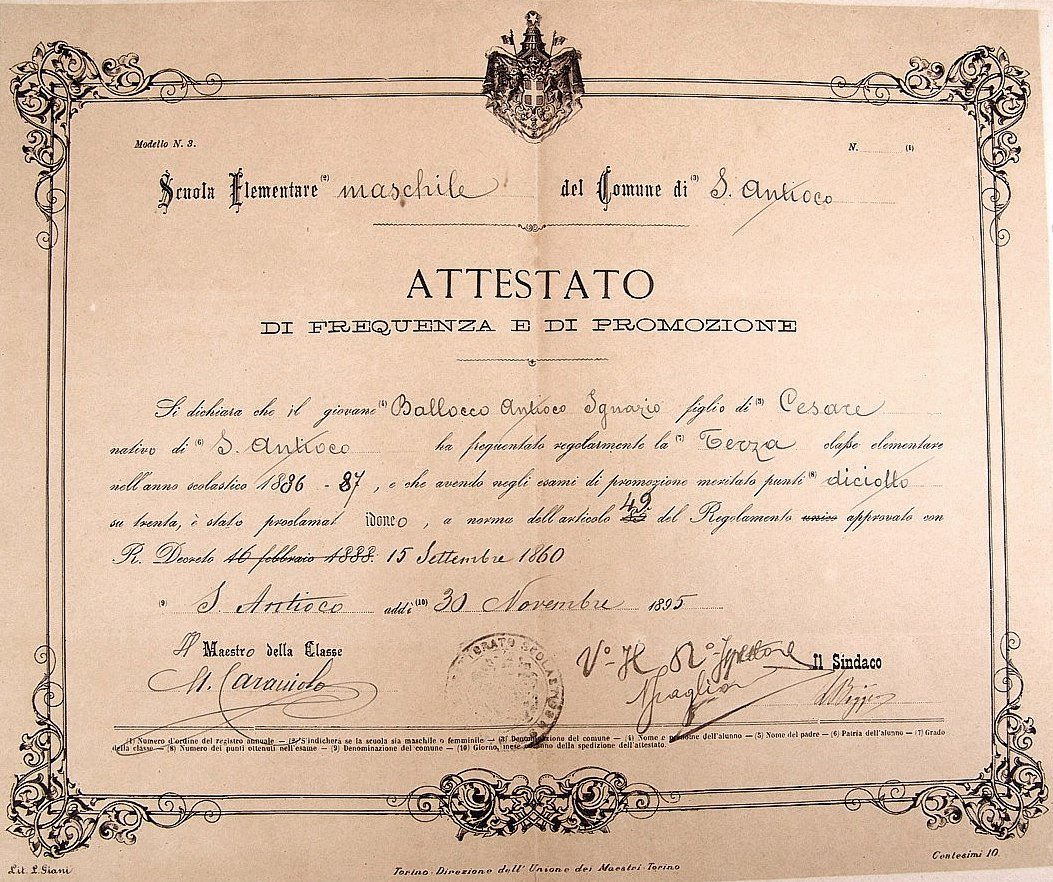 Modello N. 3.
N. (1)
Scuola Elementare (2) maschile del Comune di (3) S. Antioco
ATTESTATO
DI FREQUENZA E DI PROMOZIONE
Si dichiara che il giovane (4) Ballocco Antioco Ignazio figlio di (5) Cesare
nativo di (6) S. Antioco ha frequentato regolarmente la (7) Terza classe elementare
nell'anno scolastico 1886 - 87, e che avendo negli esami di promozione meritato punti (8) diciotto
su trenta, è stato proclamat idoneo, a norma dell'articolo 49 del Regolamento unico approvato con
R. Decreto 16 febbraio 1888. 15 Settembre 1860
(9) S. Antioco addì (10) 30 Novembre 1895
Il Maestro della Classe
Il Sindaco
(1) Numero d'ordine del registro annuale — (2) S'indicherà se la scuola sia maschile o femminile — (3) Denominazione del comune — (4) Nome e cognome dell'alunno — (5) Nome del padre — (6) Patria dell'alunno — (7) Grado
della classe — (8) Numero dei punti ottenuti nell'esame — (9) Denominazione del comune — (10) Giorno, mese ed anno della spedizione dell'attestato.
Lit. L. Giani
Torino. Direzione dell'Unione dei Maestri. Torino
Centesimi 10.